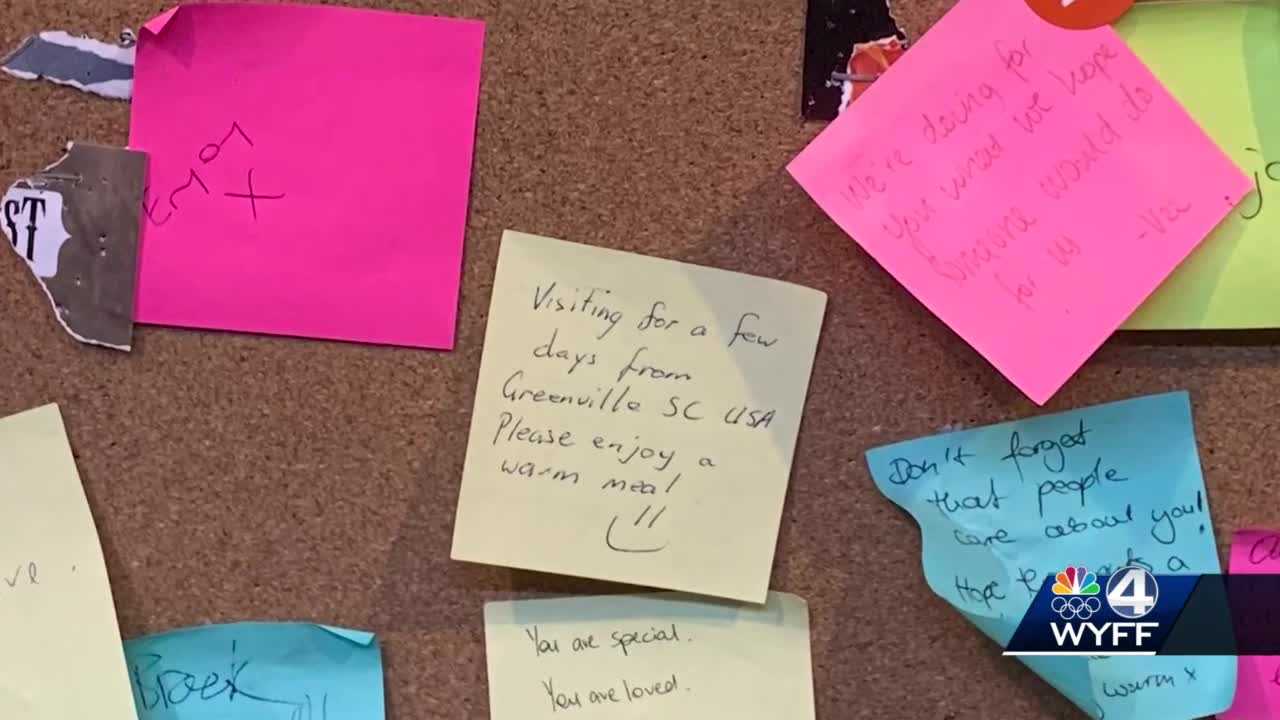 ST
Emoy
X
We're doing for
your what we hope
someone would do
for us -Vee
Visiting for a few
days from
Greenville SC USA
Please enjoy a
warm meal
Don't forget
that people
care about you!
Hope
a
warm x
You are special.
You are loved.
Brock
4
WYFF